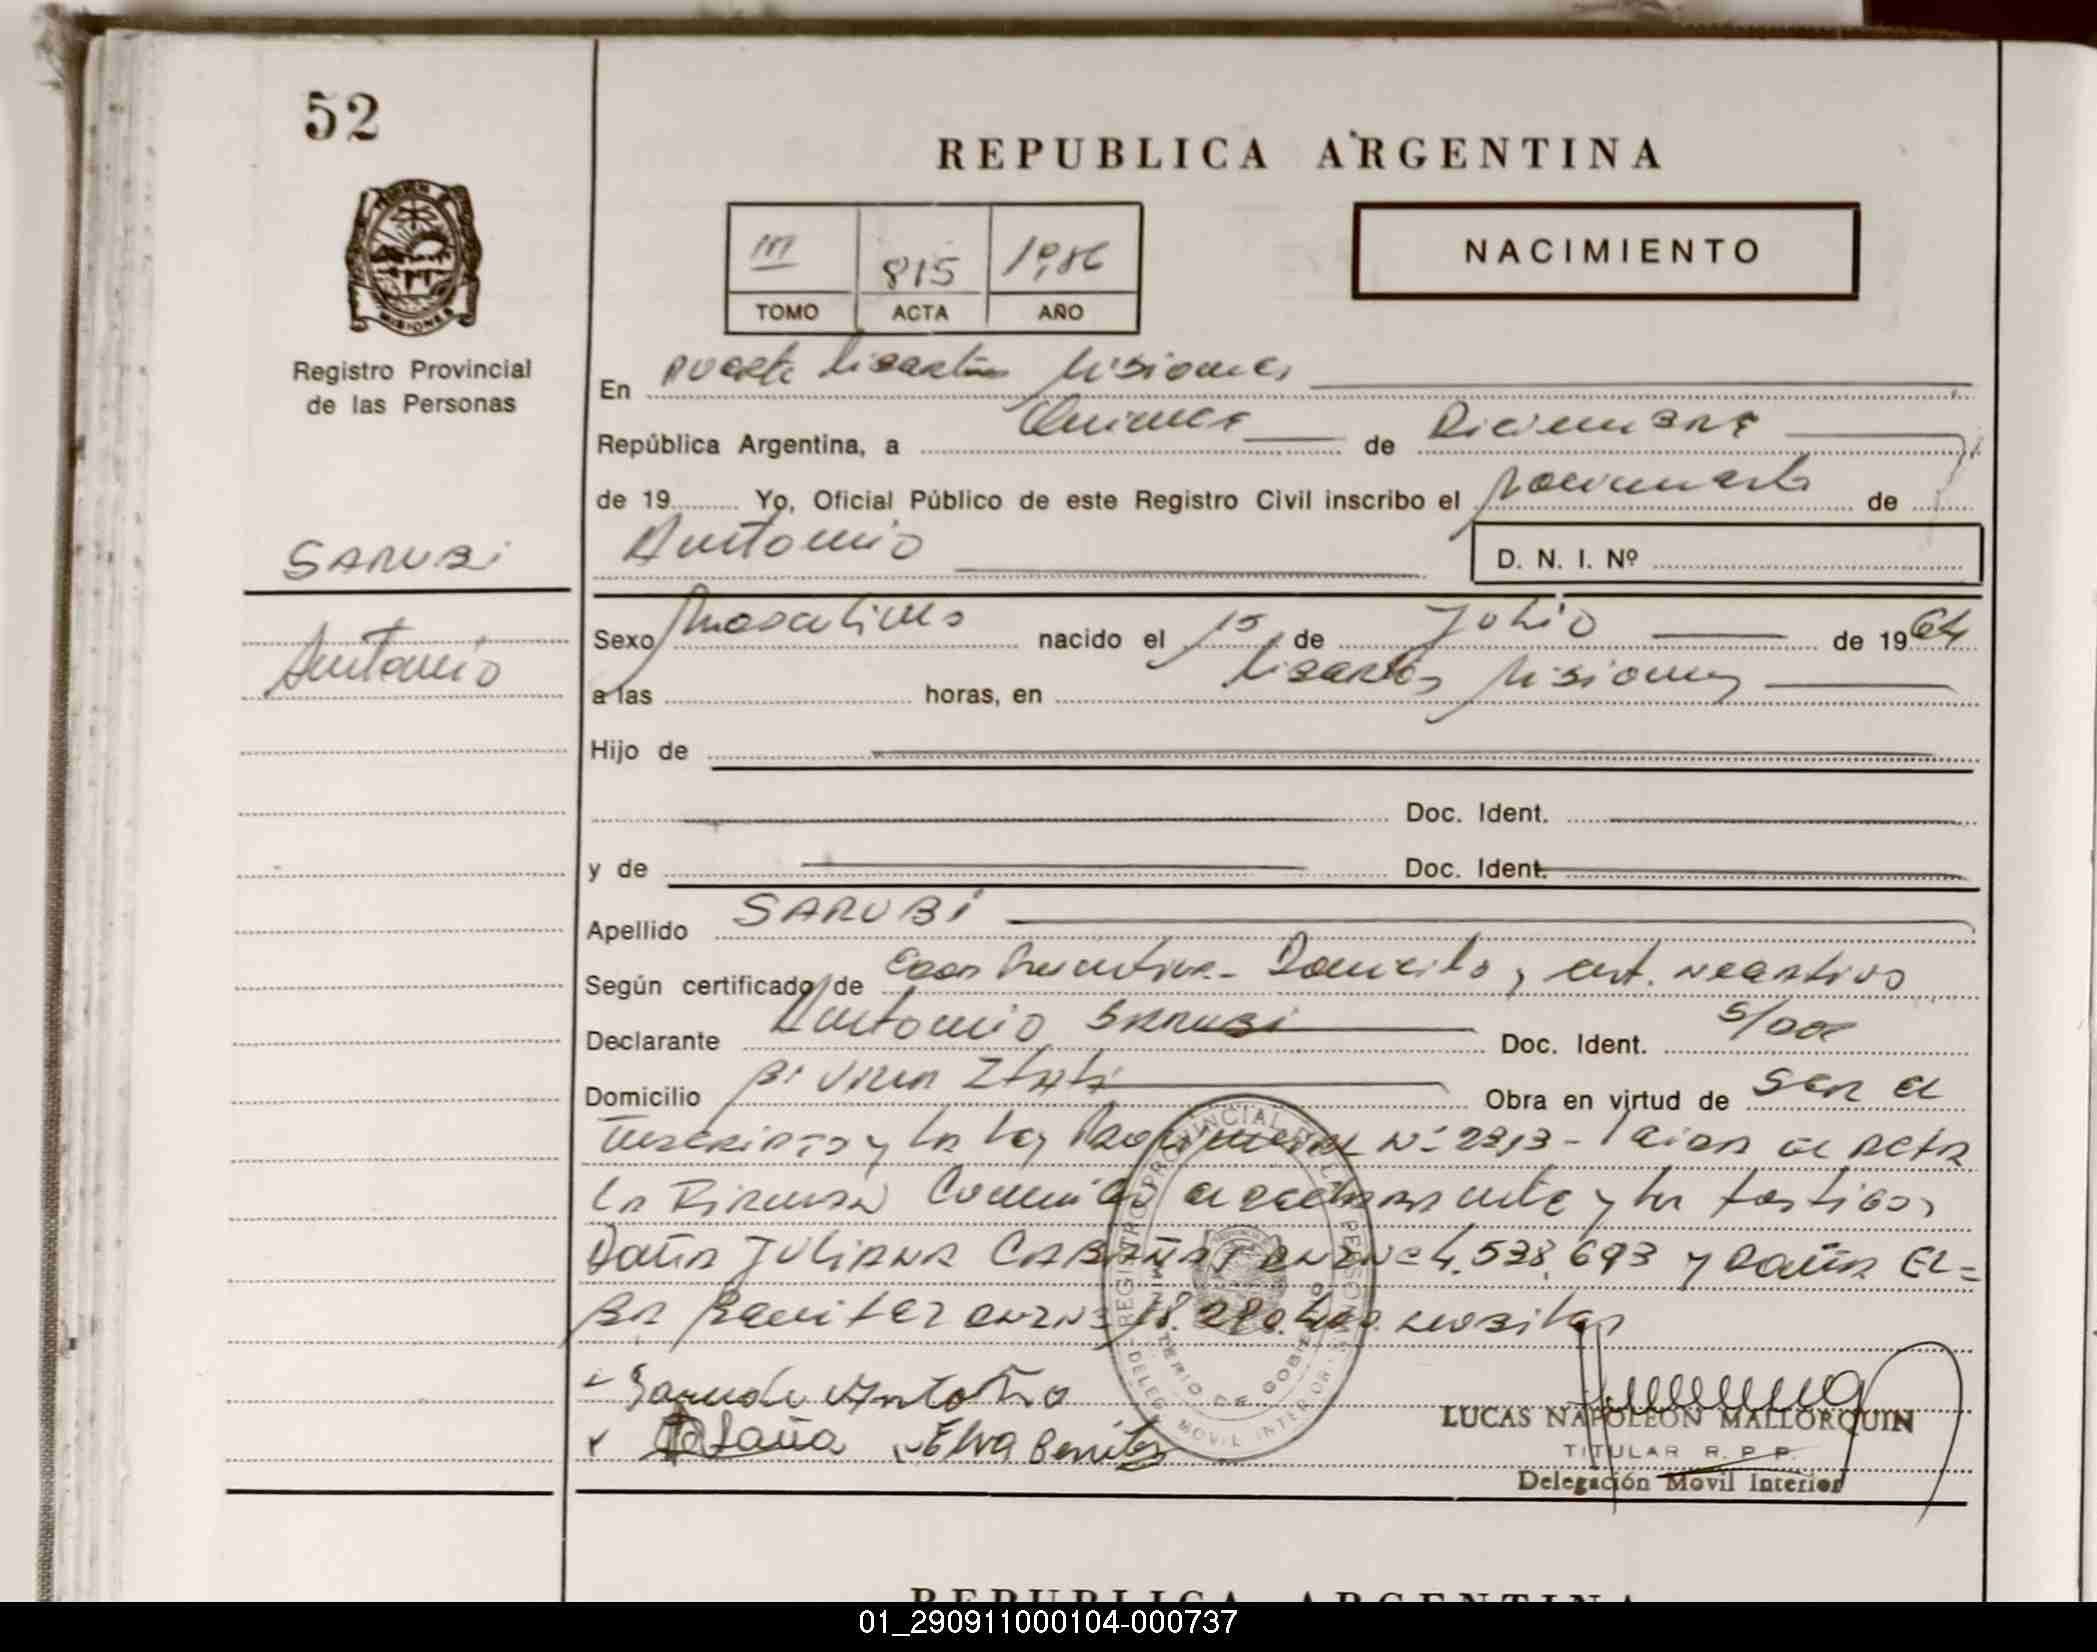 52
REPUBLICA ARGENTINA
III 815 1986
TOMO ACTA AÑO
NACIMIENTO
MISIONES
Registro Provincial
de las Personas
En Misiones
República Argentina, a Quince de Diciembre
de 19 Yo, Oficial Público de este Registro Civil inscribo el nacimiento de
SARUBI
Antonio
D. N. I. Nº
Antonio
Sexo Masculino nacido el 15 de Julio de 1964
a las horas, en Misiones
Hijo de
Doc. Ident.
y de Doc. Ident.
Apellido SARUBI
Según certificado de Domicilio y cert. negativo
Declarante Antonio SARUBI Doc. Ident. S/doc
Domicilio Bº Itatí Obra en virtud de ser el
inscripto y la ley Provincial Nº el acta
la el declarante y los testigos
Doña JULIANA CABAÑAS 4.538.693 y Doña EL=
BA Benitez
Antonio
Elva Benitez
LUCAS NAPOLEON MALLORQUIN
TITULAR R. P. P.
Delegación Movil Interior
REGISTRO PROVINCIAL DE LAS PERSONAS
MINISTERIO DE GOBIERNO
DELEG. MOVIL INTERIOR
REPUBLICA ARGENTINA
01_290911000104-000737